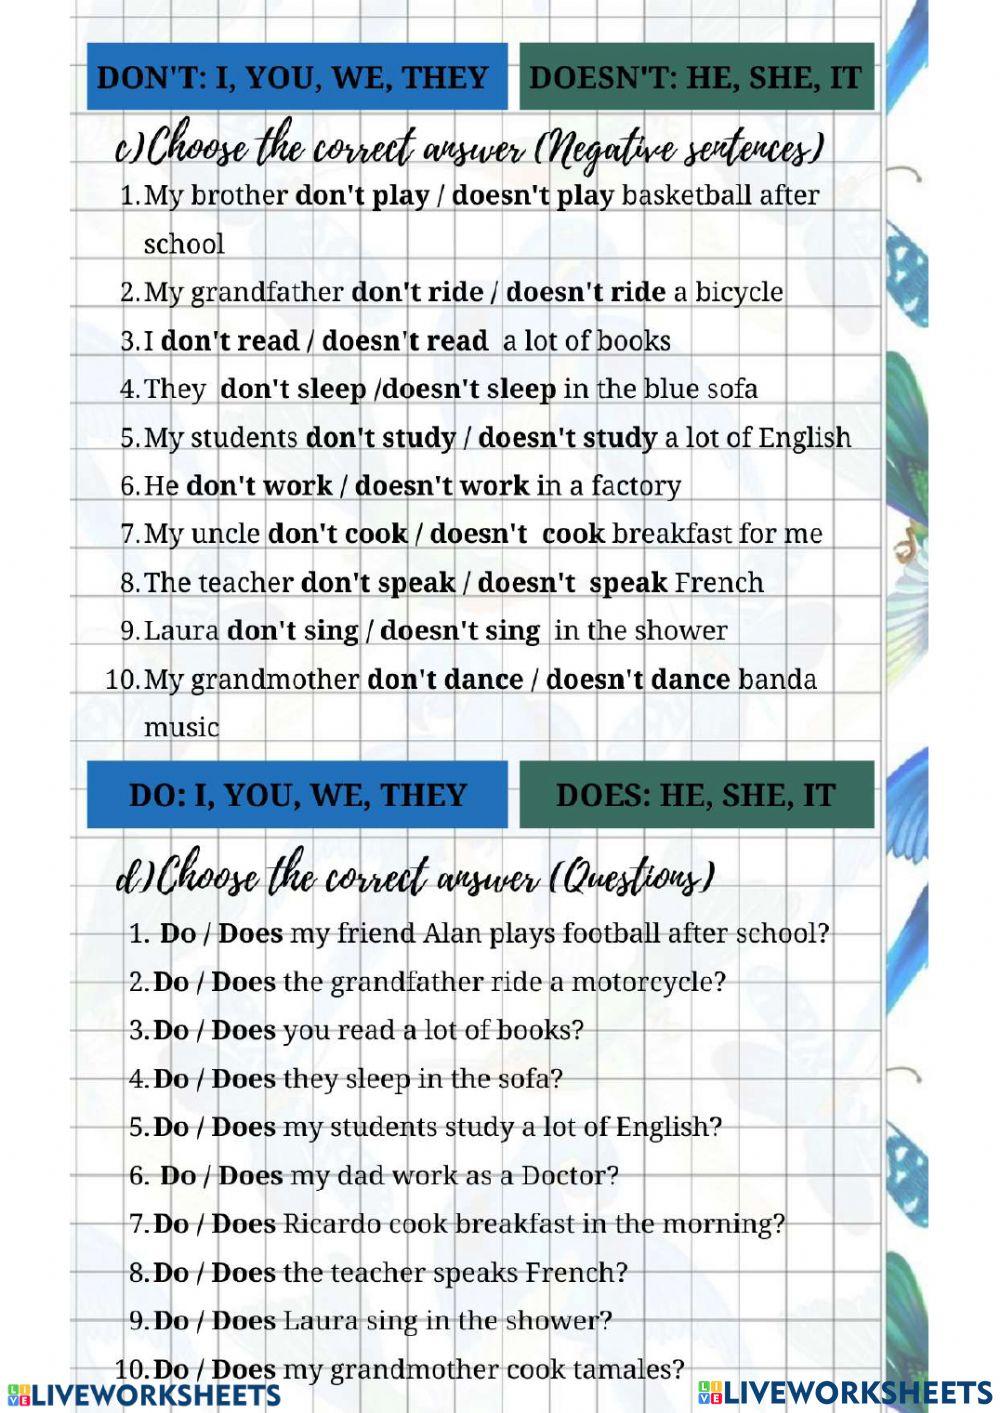 DON'T: I, YOU, WE, THEY
DOESN'T: HE, SHE, IT
c)Choose the correct answer (Negative sentences)
1. My brother don't play / doesn't play basketball after
school
2. My grandfather don't ride / doesn't ride a bicycle
3. I don't read / doesn't read a lot of books
4. They don't sleep /doesn't sleep in the blue sofa
5. My students don't study / doesn't study a lot of English
6. He don't work / doesn't work in a factory
7. My uncle don't cook / doesn't cook breakfast for me
8. The teacher don't speak / doesn't speak French
9. Laura don't sing / doesn't sing in the shower
10. My grandmother don't dance / doesn't dance banda
music
DO: I, YOU, WE, THEY
DOES: HE, SHE, IT
d)Choose the correct answer (Questions)
1. Do / Does my friend Alan plays football after school?
2. Do / Does the grandfather ride a motorcycle?
3. Do / Does you read a lot of books?
4. Do / Does they sleep in the sofa?
5. Do / Does my students study a lot of English?
6. Do / Does my dad work as a Doctor?
7. Do / Does Ricardo cook breakfast in the morning?
8. Do / Does the teacher speaks French?
9. Do / Does Laura sing in the shower?
10. Do / Does my grandmother cook tamales?
LIVE LIVEWORKSHEETS
LIVE LIVEWORKSHEETS